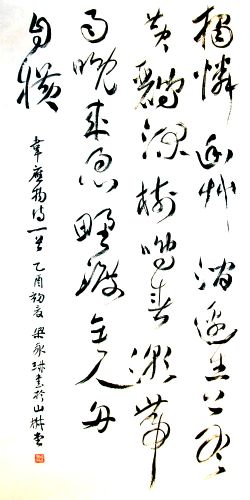 獨憐幽草澗邊生上有
黃鸝深樹鳴春潮帶
雨晚來急野渡無人舟
自橫
韋應物詩一首 乙酉初夏 梁永琳書於山